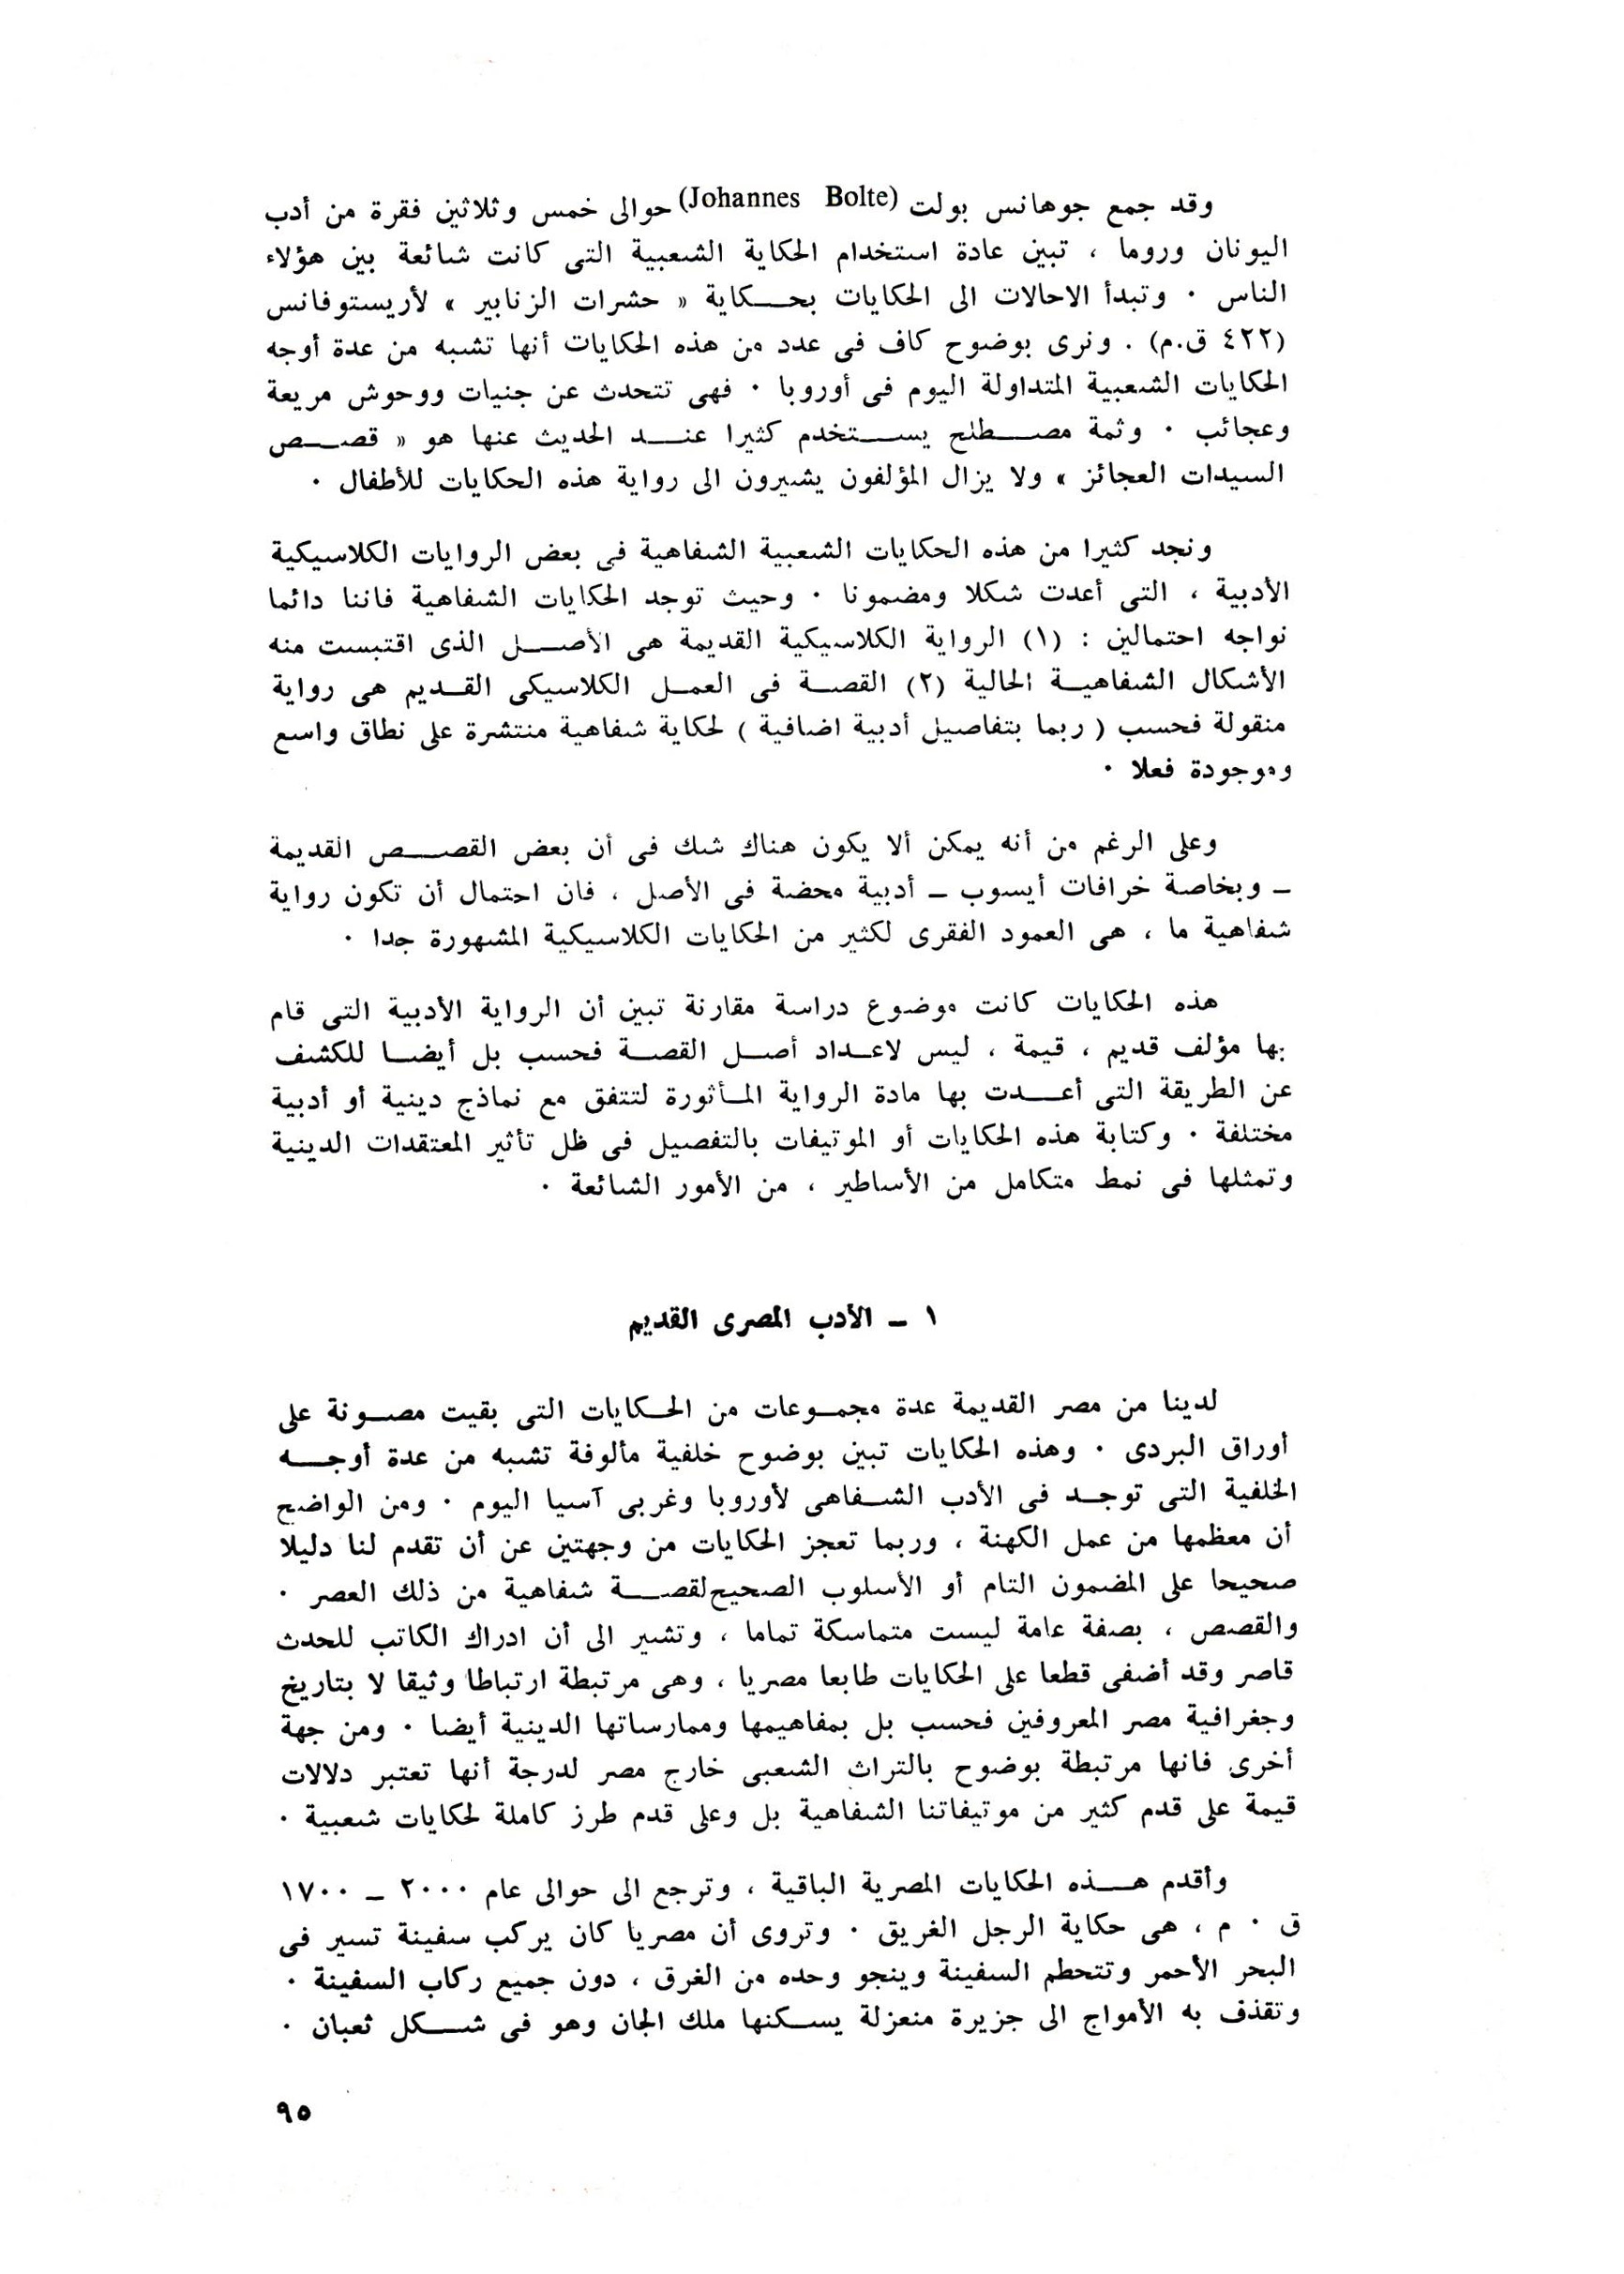 وقد جمع جوهانس بولت (Johannes Bolte) حوالى خمس وثلاثين فقرة من أدب
اليونان وروما ، تبين عادة استخدام الحكاية الشعبية التى كانت شائعة بين هؤلاء
الناس · وتبدأ الاحالات الى الحكايات بحكاية « حشرات الزنابير » لأريستوفانس
(٤٢٢ ق.م) . ونرى بوضوح كاف فى عدد من هذه الحكايات أنها تشبه من عدة أوجه
الحكايات الشعبية المتداولة اليوم فى أوروبا · فهى تتحدث عن جنيات ووحوش مريعة
وعجائب · وثمة مصطلح يستخدم كثيرا عند الحديث عنها هو « قصص
السيدات العجائز » ولا يزال المؤلفون يشيرون الى رواية هذه الحكايات للأطفال ·
ونجد كثيرا من هذه الحكايات الشعبية الشفاهية فى بعض الروايات الكلاسيكية
الأدبية ، التى أعدت شكلا ومضمونا · وحيث توجد الحكايات الشفاهية فاننا دائما
نواجه احتمالين : (١) الرواية الكلاسيكية القديمة هى الأصل الذى اقتبست منه
الأشكال الشفاهية الحالية (٢) القصة فى العمل الكلاسيكى القديم هى رواية
منقولة فحسب ( ربما بتفاصيل أدبية اضافية ) لحكاية شفاهية منتشرة على نطاق واسع
وموجودة فعلا ·
وعلى الرغم من أنه يمكن ألا يكون هناك شك فى أن بعض القصص القديمة
ـ وبخاصة خرافات أيسوب ـ أدبية محضة فى الأصل ، فان احتمال أن تكون رواية
شفاهية ما ، هى العمود الفقرى لكثير من الحكايات الكلاسيكية المشهورة جدا ·
هذه الحكايات كانت موضوع دراسة مقارنة تبين أن الرواية الأدبية التى قام
بها مؤلف قديم ، قيمة ، ليس لاعداد أصل القصة فحسب بل أيضا للكشف
عن الطريقة التى أعدت بها مادة الرواية المأثورة لتتفق مع نماذج دينية أو أدبية
مختلفة · وكتابة هذه الحكايات أو الموتيفات بالتفصيل فى ظل تأثير المعتقدات الدينية
وتمثلها فى نمط متكامل من الأساطير ، من الأمور الشائعة ·
١ ـ الأدب المصرى القديم
لدينا من مصر القديمة عدة مجموعات من الحكايات التى بقيت مصونة على
أوراق البردى · وهذه الحكايات تبين بوضوح خلفية مألوفة تشبه من عدة أوجه
الخلفية التى توجد فى الأدب الشفاهى لأوروبا وغربى آسيا اليوم · ومن الواضح
أن معظمها من عمل الكهنة ، وربما تعجز الحكايات من وجهتين عن أن تقدم لنا دليلا
صحيحا على المضمون التام أو الأسلوب الصحيح لقصة شفاهية من ذلك العصر ·
والقصص ، بصفة عامة ليست متماسكة تماما ، وتشير الى أن ادراك الكاتب للحدث
قاصر وقد أضفى قطعا على الحكايات طابعا مصريا ، وهى مرتبطة ارتباطا وثيقا لا بتاريخ
وجغرافية مصر المعروفين فحسب بل بمفاهيمها وممارساتها الدينية أيضا · ومن جهة
أخرى فانها مرتبطة بوضوح بالتراث الشعبى خارج مصر لدرجة أنها تعتبر دلالات
قيمة على قدم كثير من موتيفاتنا الشفاهية بل وعلى قدم طرز كاملة لحكايات شعبية ·
وأقدم هذه الحكايات المصرية الباقية ، وترجع الى حوالى عام ٢٠٠٠ ـ ١٧٠٠
ق · م ، هى حكاية الرجل الغريق · وتروى أن مصريا كان يركب سفينة تسير فى
البحر الأحمر وتتحطم السفينة وينجو وحده من الغرق ، دون جميع ركاب السفينة ·
وتقذف به الأمواج الى جزيرة منعزلة يسكنها ملك الجان وهو فى شكل ثعبان ·
٩٥